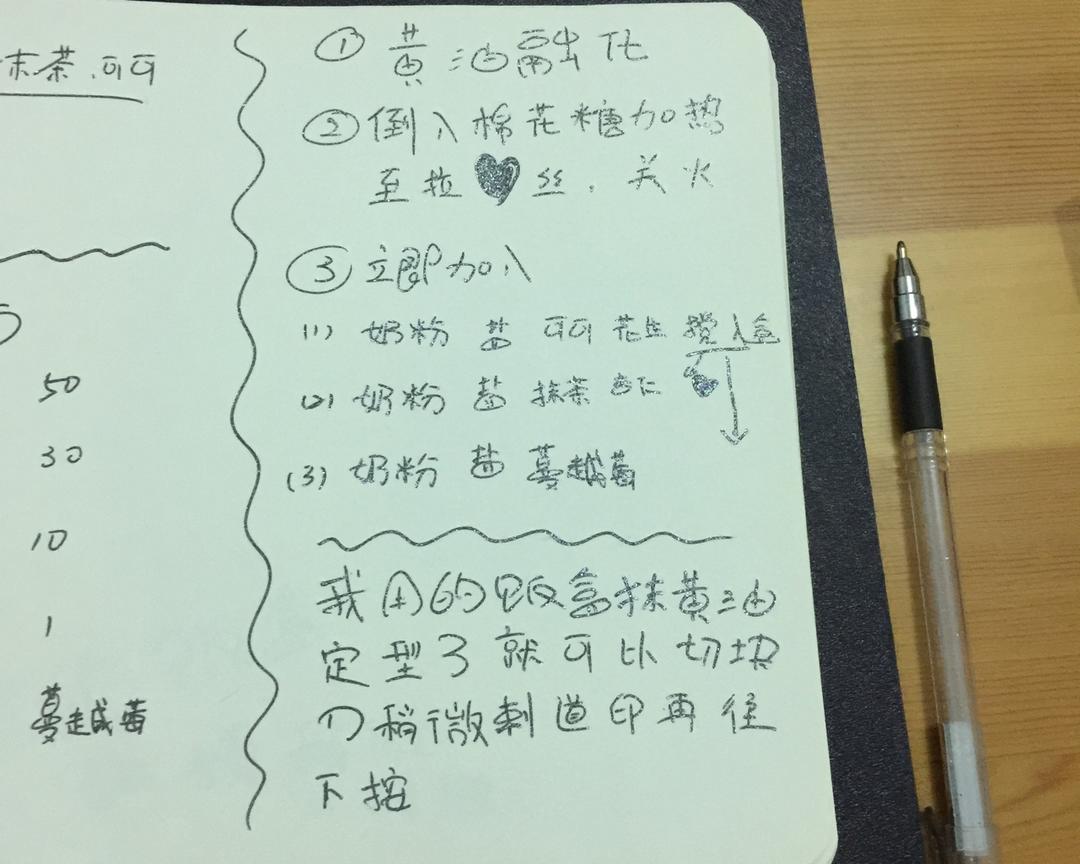 抹茶.可可
50
30
10
1
蔓越莓
① 黄油融化
② 倒入棉花糖加热
至拉♥丝.关火
③ 立即加入
(1) 奶粉 盐 可可 花生 搅入盒
(2) 奶粉 盐 抹茶 杏仁
(3) 奶粉 盐 蔓越莓
我用的饭盒抹黄油
定型了就可以切块
刀稍微刺道印再往
下按